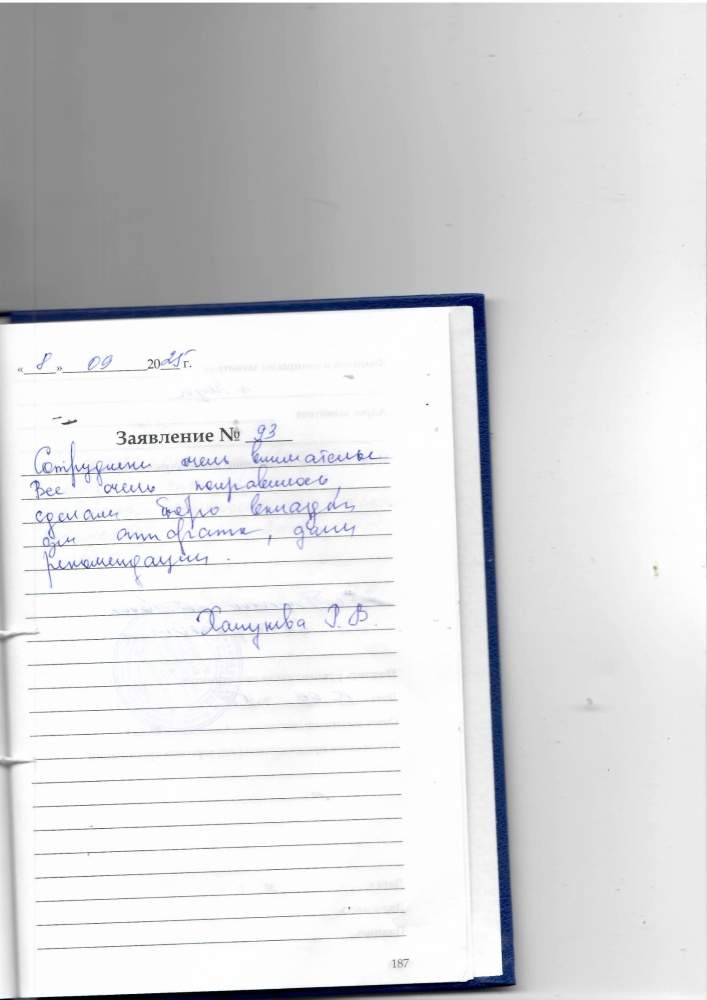 « 8 » 09 2025 г.
Заявление № 93
Сотрудники очень внимательные
Все очень понравилось,
сделали быстро вкладки
для аппарата, дали
рекомендации.
Р. В.
187